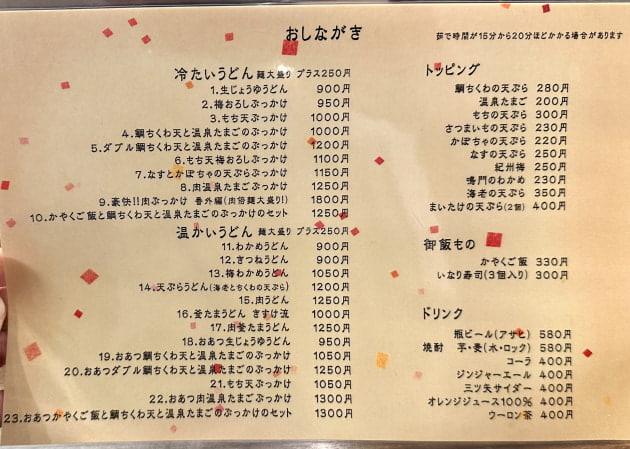 おしながき
茹で時間が15分から20分ほどかかる場合があります
冷たいうどん 麺大盛り プラス250円
1.生じょうゆうどん 900円
2.梅おろしぶっかけ 950円
3.もち天ぶっかけ 1000円
4.鯛ちくわ天と温泉たまごのぶっかけ 1000円
5.ダブル鯛ちくわ天と温泉たまごのぶっかけ 1200円
6.もち天梅おろしぶっかけ 1100円
7.なすとかぼちゃの天ぷらぶっかけ 1150円
8.肉温泉たまごぶっかけ 1250円
9.豪快!!肉ぶっかけ 番外編(肉倍麺大盛り!) 1800円
10.かやくご飯と鯛ちくわ天と温泉たまごのぶっかけのセット 1250円
温かいうどん 麺大盛り プラス250円
11.わかめうどん 900円
12.きつねうどん 900円
13.梅わかめうどん 1050円
14.天ぷらうどん(海老とちくわの天ぷら) 1200円
15.肉うどん 1250円
16.釜たまうどん きすけ流 1000円
17.肉釜たまうどん 1250円
18.おあつ生じょうゆうどん 950円
19.おあつ鯛ちくわ天と温泉たまごのぶっかけ 1050円
20.おあつダブル鯛ちくわ天と温泉たまごのぶっかけ 1250円
21.もち天ぶっかけ 1050円
22.おあつ肉温泉たまごぶっかけ 1300円
23.おあつかやくご飯と鯛ちくわ天と温泉たまごのぶっかけのセット 1300円
トッピング
鯛ちくわの天ぷら 280円
温泉たまご 200円
もちの天ぷら 300円
さつまいもの天ぷら 230円
かぼちゃの天ぷら 220円
なすの天ぷら 250円
紀州梅 250円
鳴門のわかめ 230円
海老の天ぷら 350円
まいたけの天ぷら(2個) 400円
御飯もの
かやくご飯 330円
いなり寿司(3個入り) 300円
ドリンク
瓶ビール(アサヒ) 580円
焼酎 芋・麦(水・ロック) 580円
コーラ 400円
ジンジャーエール 400円
三ツ矢サイダー 400円
オレンジジュース100% 400円
ウーロン茶 400円